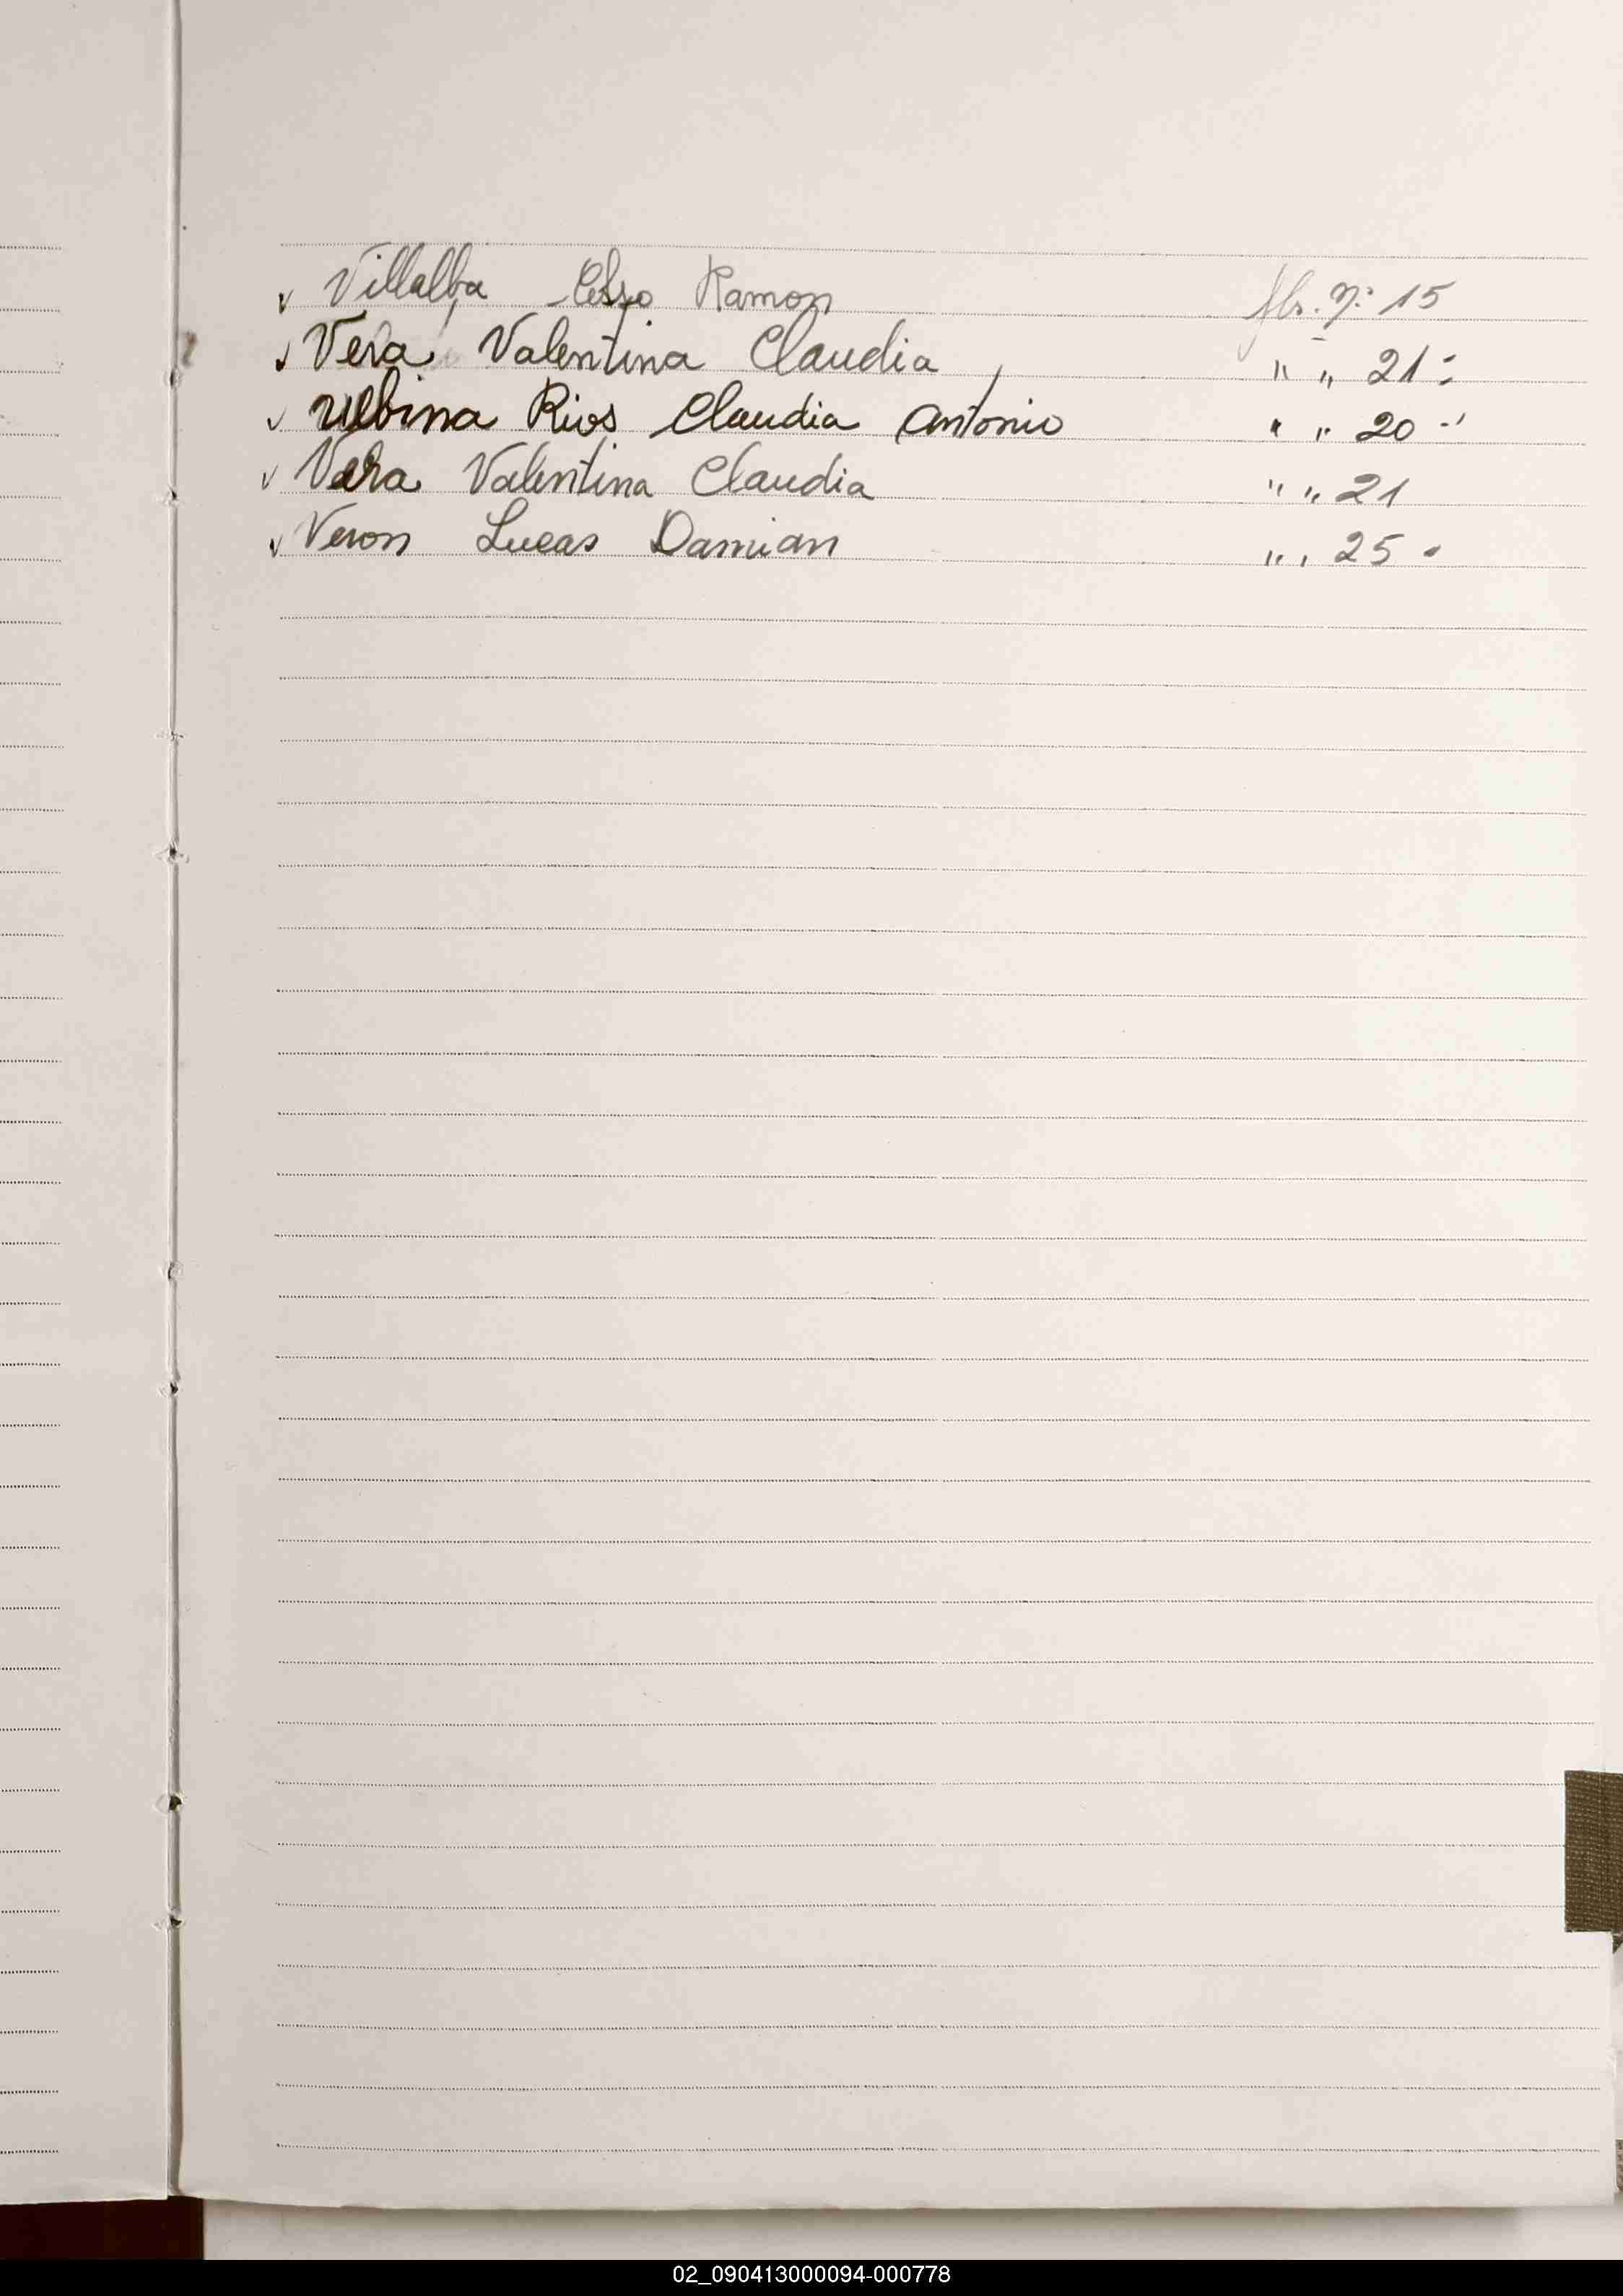 ✓ Villalba Celso Ramon fls. Nº 15
✓ Vera Valentina Claudia, " " 21 =
✓ Urbina Rios Claudia Antonio " " 20 -'
✓ Vera Valentina Claudia " " 21
✓ Veron Lucas Damian " " 25 -
02_090413000094-000778